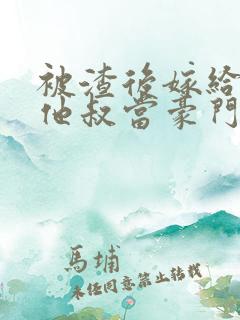 被渣後嫁給
他叔當豪門
馬埔
未任同意禁止轉載